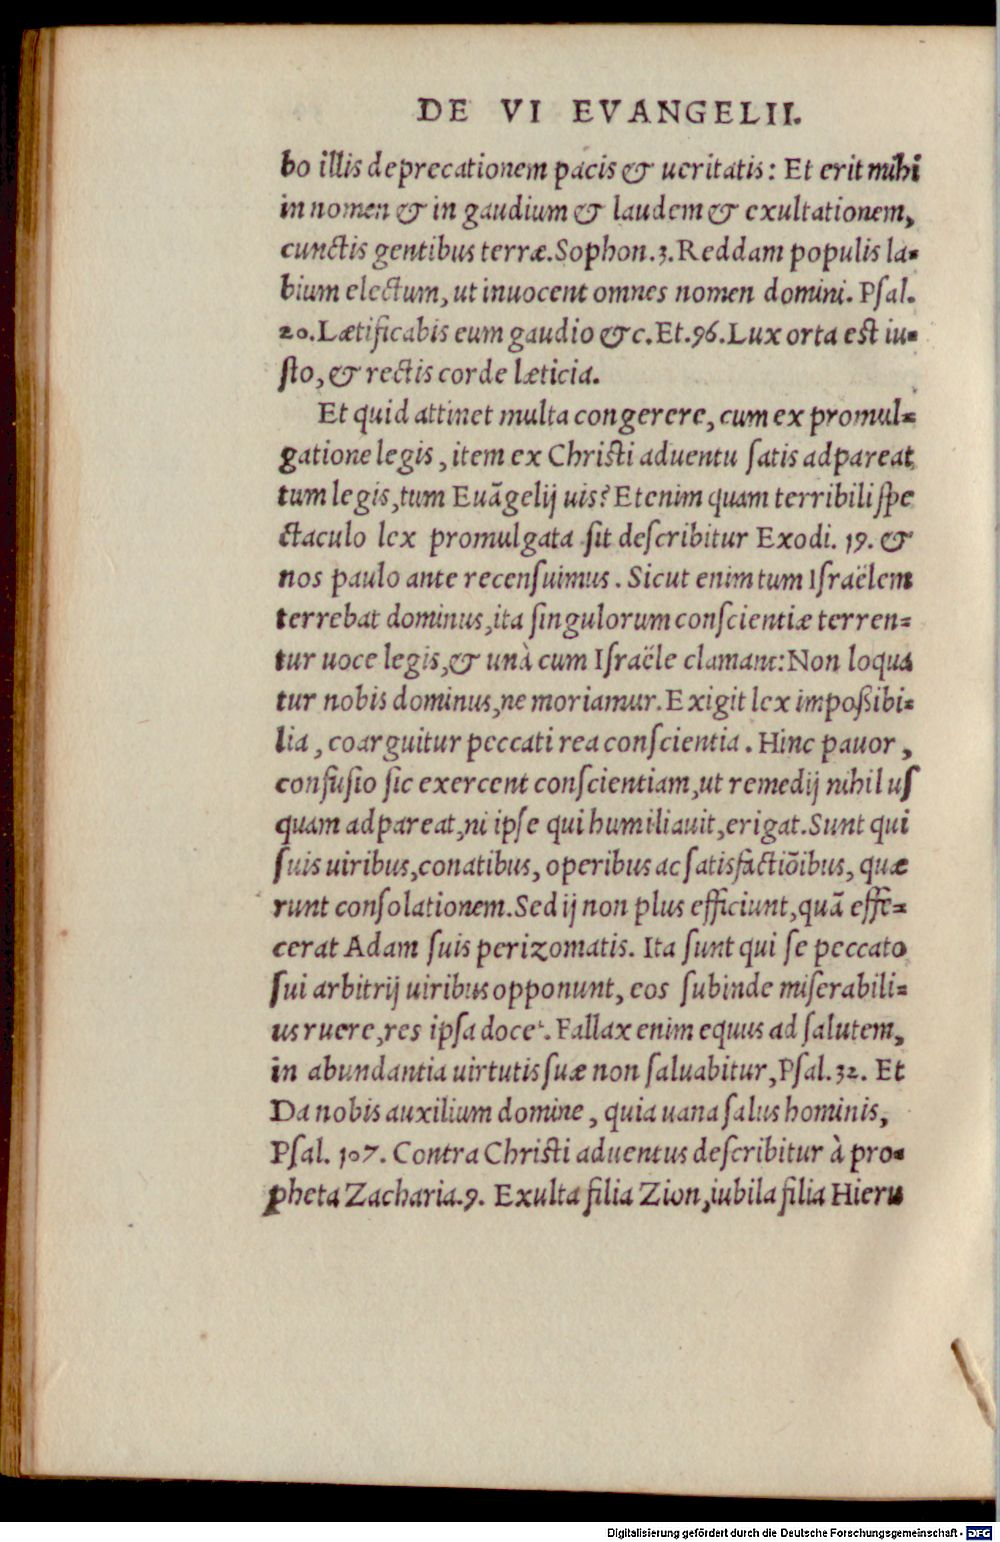 DE VI EVANGELII.
bo illis deprecationem pacis & ueritatis: Et erit mihi
in nomen & in gaudium & laudem & exultationem,
cunctis gentibus terræ. Sophon. 3. Reddam populis la-
bium electum, ut inuocent omnes nomen domini. Psal.
20. Lætificabis eum gaudio &c. Et. 96. Lux orta est iu-
sto, & rectis corde læticia.
Et quid attinet multa congerere, cum ex promul-
gatione legis, item ex Christi aduentu satis adpareat
tum legis, tum Euãgelij uis? Etenim quam terribili spe
ctaculo lex promulgata sit describitur Exodi. 19. &
nos paulo ante recensuimus. Sicut enim tum Israëlem
terrebat dominus, ita singulorum conscientiæ terren-
tur uoce legis, & unà cum Israële clamant: Non loqua
tur nobis dominus, ne moriamur. Exigit lex impoßibi-
lia, coarguitur peccati rea conscientia. Hinc pauor,
confusio sic exercent conscientiam, ut remedij nihil us
quam adpareat, ni ipse qui humiliauit, erigat. Sunt qui
suis uiribus, conatibus, operibus ac satisfactiõibus, quæ
runt consolationem. Sed ij non plus efficiunt, quã effe-
cerat Adam suis perizomatis. Ita sunt qui se peccato
sui arbitrij uiribus opponunt, eos subinde miserabili-
us ruere, res ipsa docet. Fallax enim equus ad salutem,
in abundantia uirtutis suæ non saluabitur, Psal. 32. Et
Da nobis auxilium domine, quia uana salus hominis,
Psal. 107. Contra Christi aduentus describitur à pro-
pheta Zacharia. 9. Exulta filia Zion, iubila filia Hieru
Digitalisierung gefördert durch die Deutsche Forschungsgemeinschaft - DFG